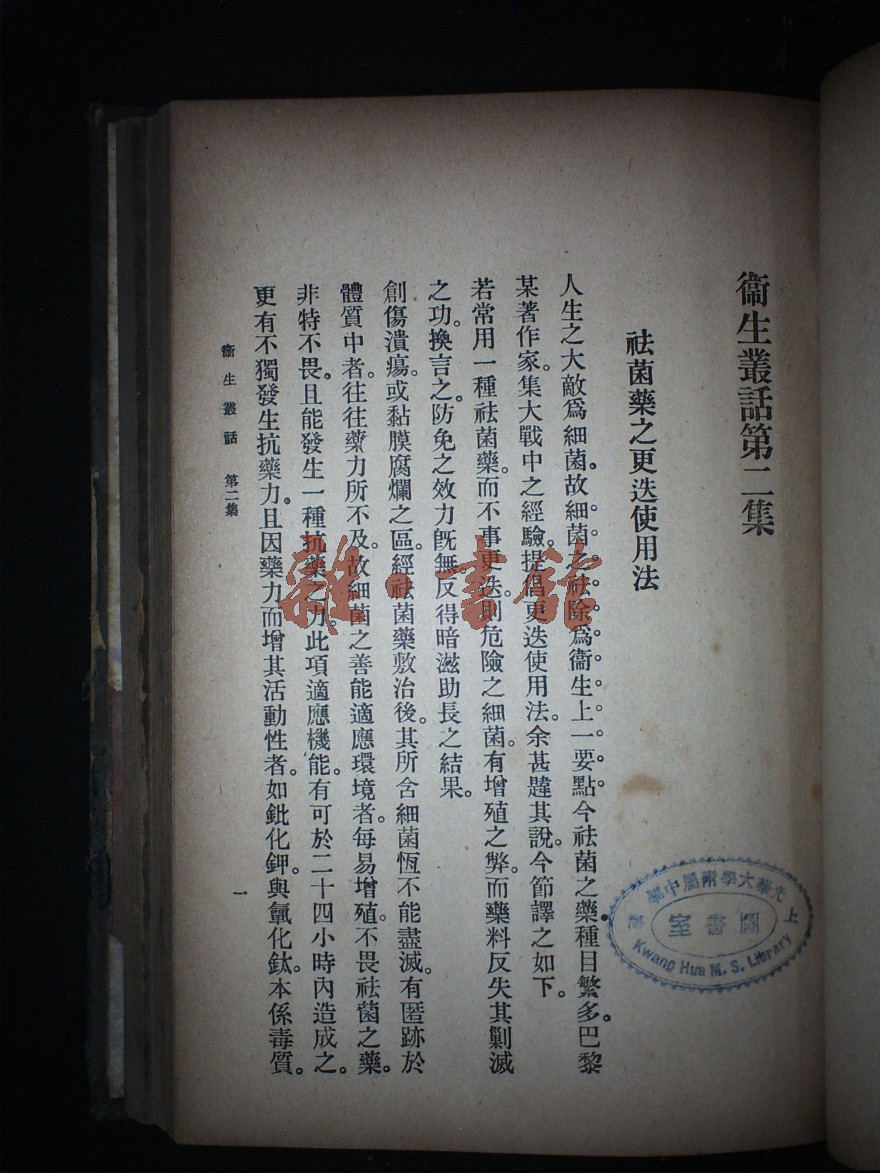 衞生叢話第二集
祛菌藥之更迭使用法
人生之大敵爲細菌。故細菌之祛除爲衞生上一要點。今祛菌之藥。種目繁多。巴黎
某著作家。集大戰中之經驗。提倡更迭使用法。余甚韙其說。今節譯之如下。
若常用一種祛菌藥。而不事更迭。則危險之細菌。有增殖之弊。而藥料反失其剿滅
之功。換言之。防免之效力旣無。反得暗滋助長之結果。
創傷潰瘍。或黏膜腐爛之區。經祛菌藥敷治後。其所含細菌。恆不能盡滅。有匿跡於
體質中者。往往藥力所不及。故細菌之善能適應環境者。每易增殖。不畏祛菌之藥。
非特不畏。且能發生一種抗藥之力。此項適應機能。有可於二十四小時內造成之。
更有不獨發生抗藥力。且因藥力而增其活動性者。如鈚化鉀。與氯化鈦。本係毒質。
衞生叢話 第二集
一
雜·書館
上海光華大學附屬中學
圖書室
Kwang Hua M. S. Library